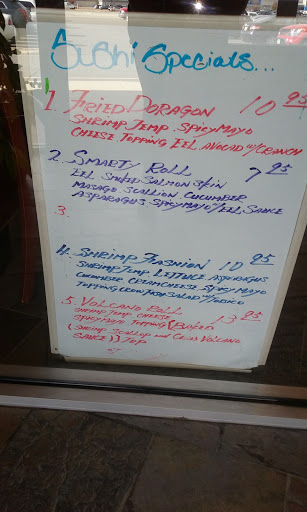 Sushi Specials...
1. Fried Doragon 10 95
Shrimp Temp. Spicy Mayo
Cheese Topping Eel Avocad w/ Crunch
2. Smarty Roll 7 95
Eel Smoked Salmon Skin
Masago Scallion Cucumber
Asparagus Spicy Mayo/Eel Sauce
3.
4. Shrimp Fashion 10 95
Shrimp Temp Lettuce Asparagus
Cucumber Cream Cheese Spicy Mayo
Topping Salad w/
5. Volcano Roll 13 95
Shrimp Temp Cheese
Spicy Mayo Topping [Baked
(Shrimp Scallop and Volcano
Sauce)] Top